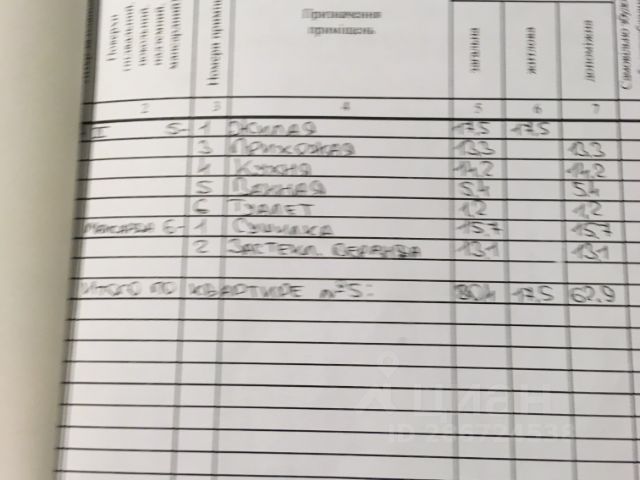 Поверхи
Номери примі
Призначення
приміщень
загальна
житлова
допоміжна
2 3 4 5 6 7
II 5- 1 ЖИЛАЯ 17,5 17,5
3 ПРИХОЖАЯ 13,3 13,3
4 КУХНЯ 14,2 14,2
5 ВАННАЯ 5,4 5,4
6 ТУАЛЕТ 1,2 1,2
МАНСАРДА 6- 1 СУШИЛКА 15,7 15,7
2 ЗАСТЕКЛ. ВЕРАНДА 13,1 13,1
ИТОГО ПО КВАРТИРЕ №5: 80,4 17,5 62,9
циан